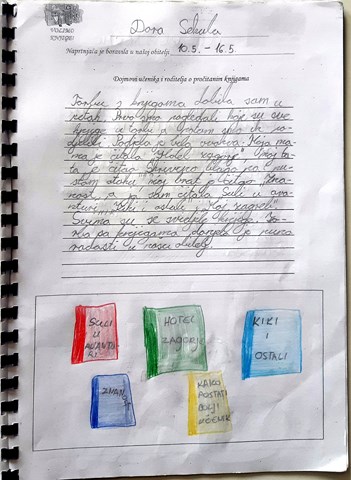 VOLIMO
KNJIGU
Dora Sekula
Naprtnjača je boravila u našoj obitelji 10.5. - 16.5
Dojmovi učenika i roditelja o pročitanim knjigama
Torbu s knjigama dobila sam u
petak. Prvo smo pogledali koje su sve
knjige u torbi a potom smo ih po-
djelili. Podjela je bila ovakva: Moja ma-
ma je čitala "Hotel Zagorje", moj ta-
ta je čitao Skriveno blago na pu-
stom otoku moj brat je čitao Zna-
nost, a ja sam čitala Suli u avan-
turi, "Kiki i ostali" i Moj zagreb".
Svima su se svidjele knjige. To-
rba sa knjigama donjela je puno
radosti u našu obitelj.
SULI
U
AVANTU-
RI
HOTEL
ZAGORJE
KIKI
I
OSTALI
ZNANOST
KAKO
POSTATI
BOLJI
UČENIK